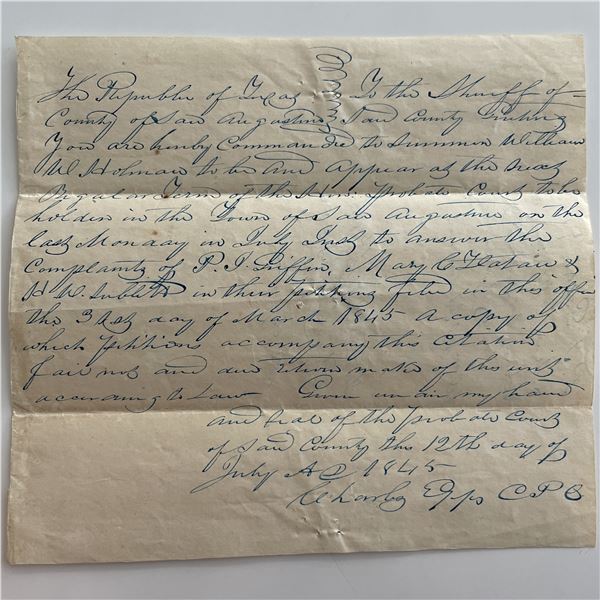 The Republic of Texas To the Sheriff of
County of San Augustine Said County Greeting
You are hereby Commanded to Summon William
W. Holman to be and appear at the next
Regular Term of the Hon. Probate Court to be
holden in the Town of San Augustine on the
last Monday in July Inst to answer the
Complaints of P. J. Griffin, Mary C &
H W Sublett in their petition filed in this office
the 31st day of March 1845 A copy of
which petition accompany this citation
fail not and due return make of this writ
according to Law Given under my hand
and Seal of the probate Court
of said County this 12th day of
July AD 1845
Charles Epps C P C